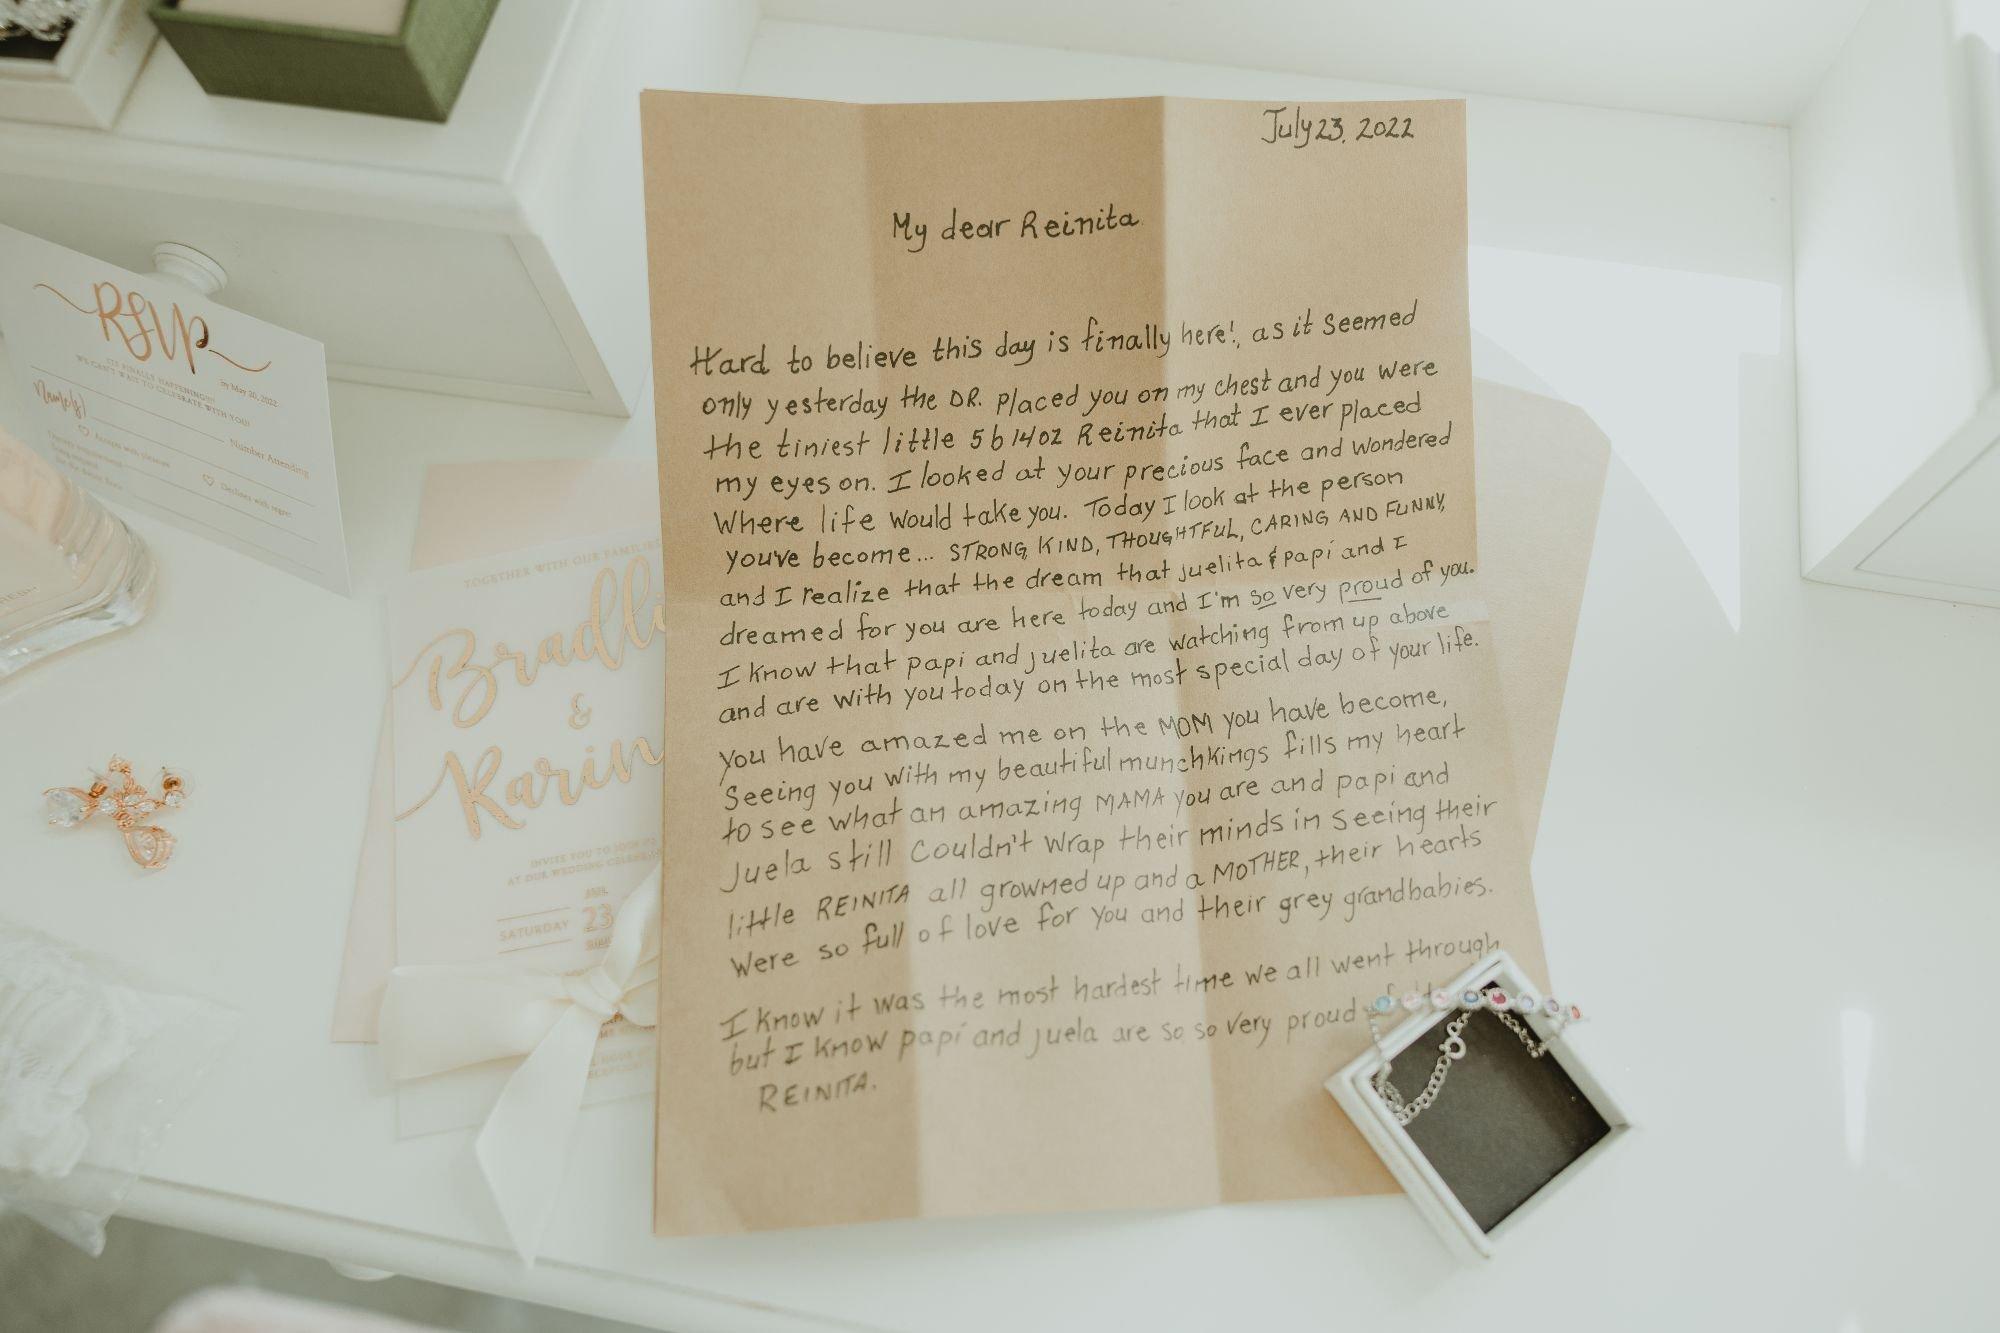 July 23, 2022
My dear Reinita
Hard to believe this day is finally here!, as it seemed
only yesterday the DR. placed you on my chest and you were
the tiniest little 5b 14oz Reinita that I ever placed
my eyes on. I looked at your precious face and wondered
where life would take you. Today I look at the person
you've become... STRONG, KIND, THOUGHTFUL, CARING AND FUNNY,
and I realize that the dream that juelita & papi and I
dreamed for you are here today and I'm so very proud of you.
I know that papi and juelita are watching from up above
and are with you today on the most special day of your life.
You have amazed me on the MOM you have become,
Seeing you with my beautiful munchkings fills my heart
to see what an amazing MAMA you are and papi and
Juela still couldn't wrap their minds in seeing their
little REINITA all growned up and a MOTHER, their hearts
were so full of love for you and their grey grandbabies.
I know it was the most hardest time we all went through
but I know papi and juela are so so very proud
REINITA.
RSVP
by May 20, 2022
IT'S FINALLY HAPPENING!!!
WE CAN'T WAIT TO CELEBRATE WITH YOU!
Name(s)
Number Attending
Accepts with pleasure
Declines with regret
TOGETHER WITH OUR FAMILIES
Bradl
&
Karin
INVITE YOU TO JOIN
AT OUR WEDDING
SATURDAY
23